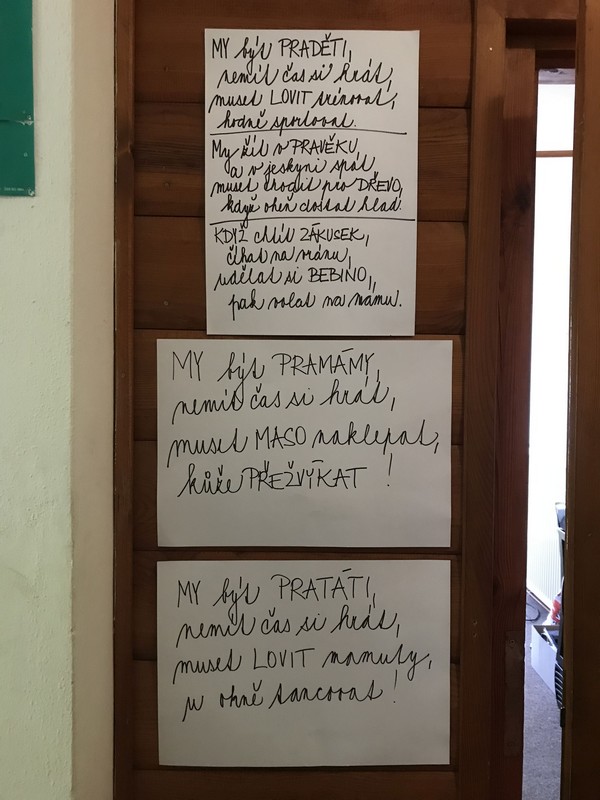 MY být PRADĚTI,
nemít čas si hrát,
muset LOVIT trénovat,
hodně sportovat.
My žít v PRAVĚKU,
a v jeskyni spát,
muset chodit pro DŘEVO,
když oheň dostat hlad.
KDYŽ chtít ZÁKUSEK,
číhat na vránu,
udělat si BEBINO,
pak volat na mámu.
MY být PRAMÁMY,
nemít čas si hrát,
muset MASO naklepat,
kůže PŘEŽVÝKAT !
MY být PRATÁTI,
nemít čas si hrát,
muset LOVIT mamuty,
u ohně tancovat !